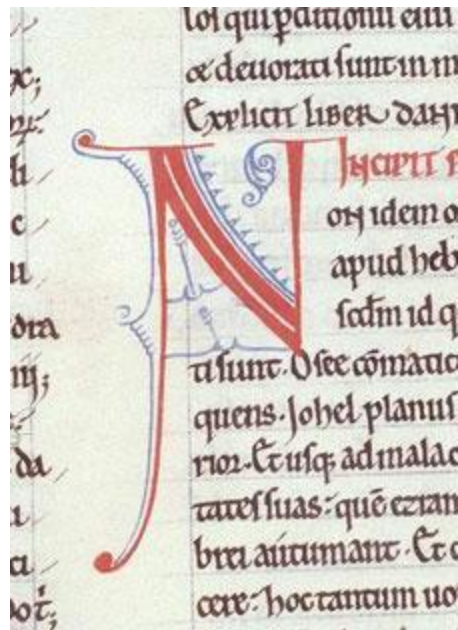 lol qui pditionu eiu
& deuorati sunt in m
Explicit liber dani
Incipit p
N on idem o
apud heb
scdm id q
ti sunt. Osee cōmatic
quens. Johel planus
rior. Et usq; ad malac
tates suas: quē ezram
brei autumant. Et c
cere: hoc tantum uo
x;
li
c
u
ora
iij;
da
ci